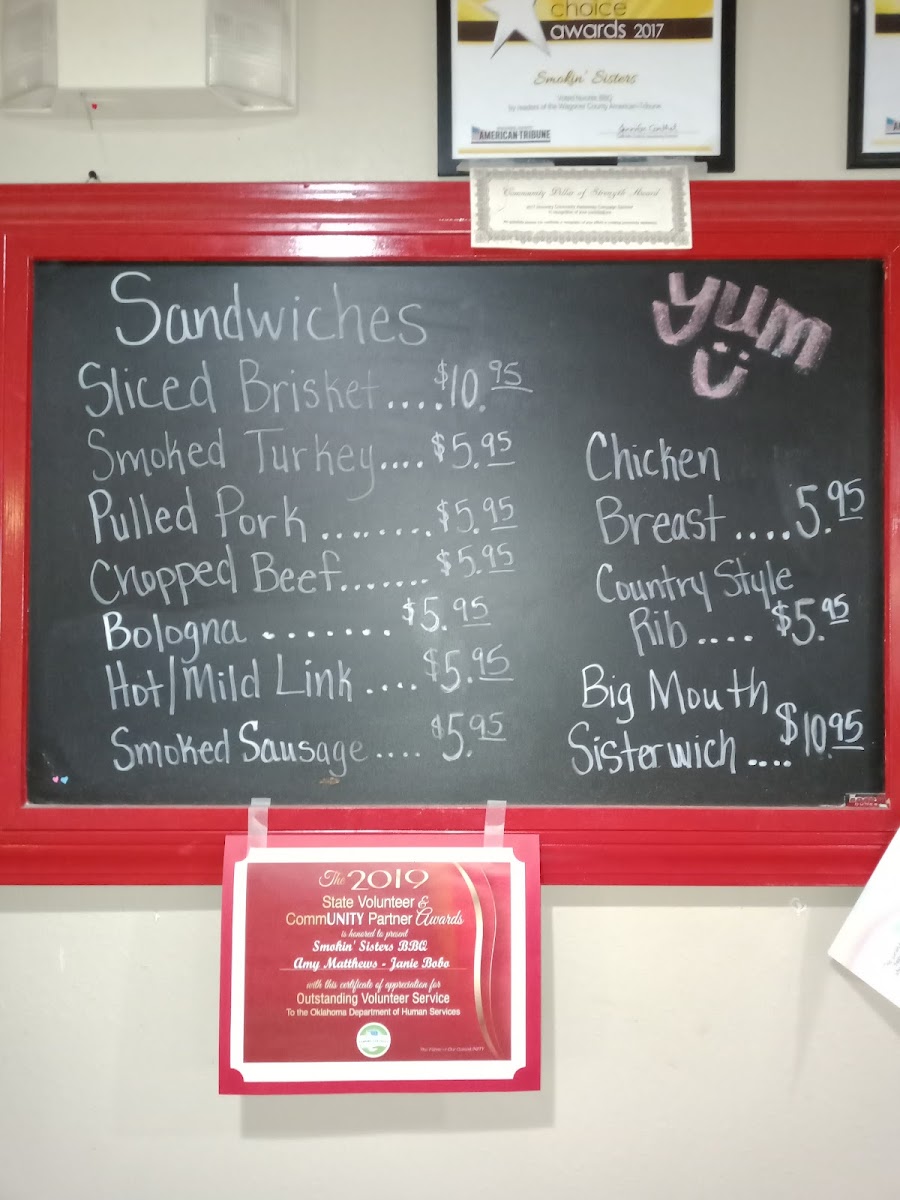 choice
awards 2017
Smokin' Sisters
Voted Favorite BBQ
by readers of the Wagoner County American-Tribune
AMERICAN-TRIBUNE
Community Pillar of Strength Award
Sandwiches
Sliced Brisket....$10.95
Smoked Turkey....$5.95
Pulled Pork.........$5.95
Chopped Beef.......$5.95
Bologna.......$5.95
Hot/Mild Link....$5.95
Smoked Sausage....$5.95
yum
Chicken
Breast....5.95
Country Style
Rib....$5.95
Big Mouth
Sisterwich....$10.95
The 2019
State Volunteer &
CommUNITY Partner Awards
is honored to present
Smokin' Sisters BBQ
Amy Matthews - Janie Bobo
with this certificate of appreciation for
Outstanding Volunteer Service
To the Oklahoma Department of Human Services